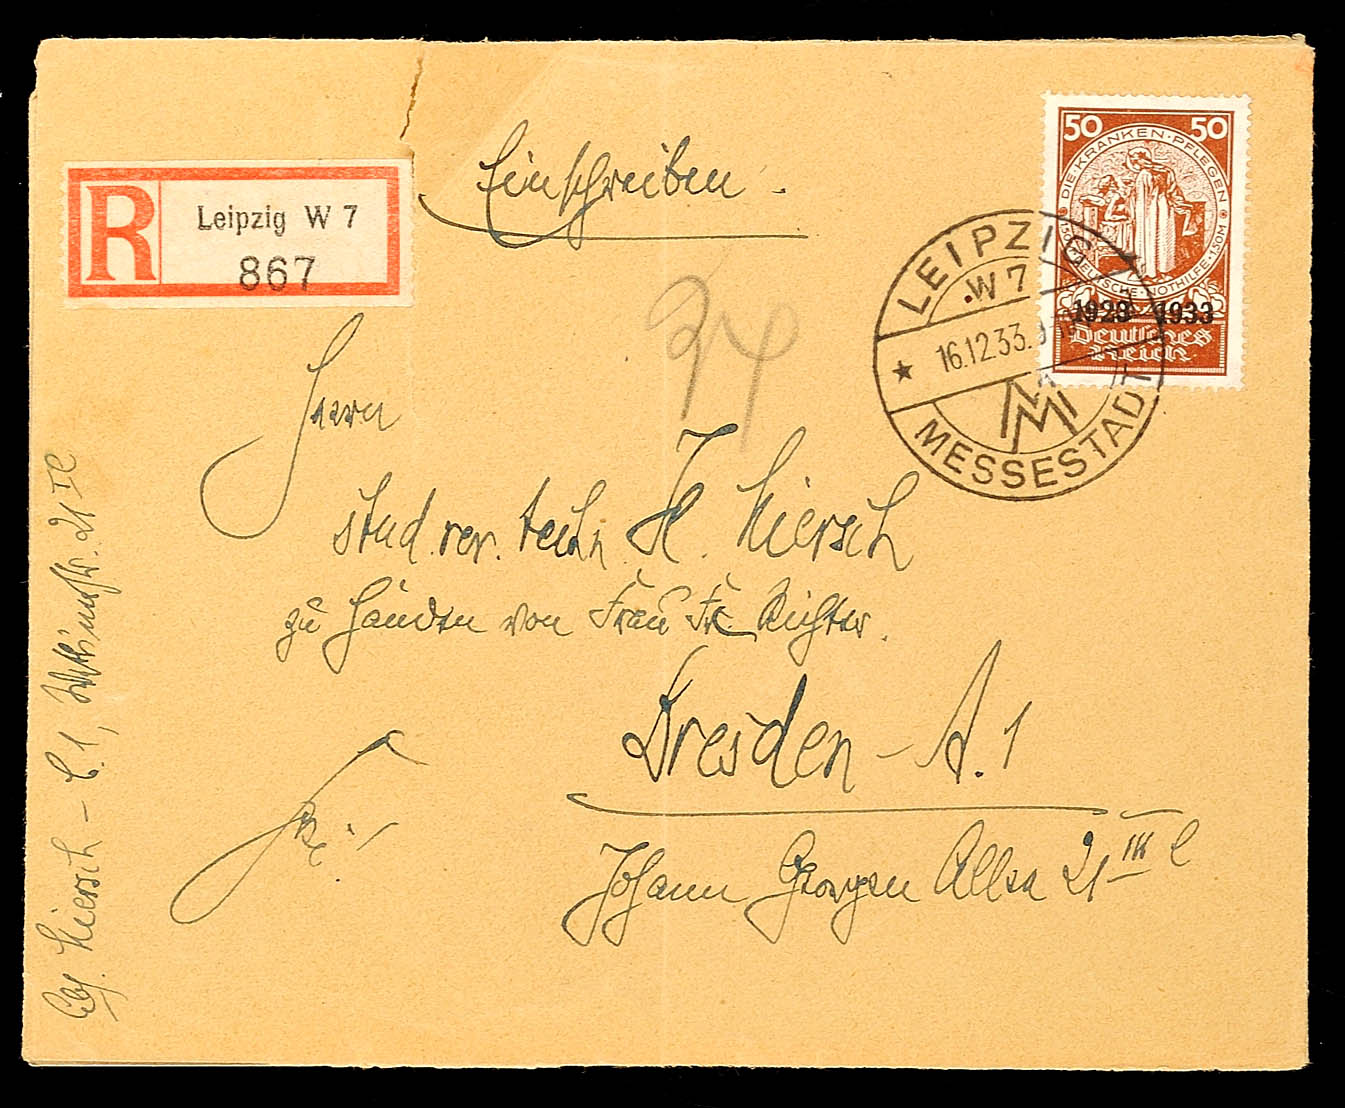 Einschreiben.
R
Leipzig W 7
867
50 50
DIE·KRANKEN·PFLEGEN
DEUTSCHE·NOTHILFE·1.50M
1923 1933
Deutsches
Reich
LEIPZIG
W 7
16.12.33.
M
MESSESTADT
Herrn
stud. rer. techn. H. Hiersch
zu Händen von Frau Fr. Richter.
Dresden - A. 1
Johann Georgen Allee 21 III l
Abs. Hiersch - C. 1, 21 II l